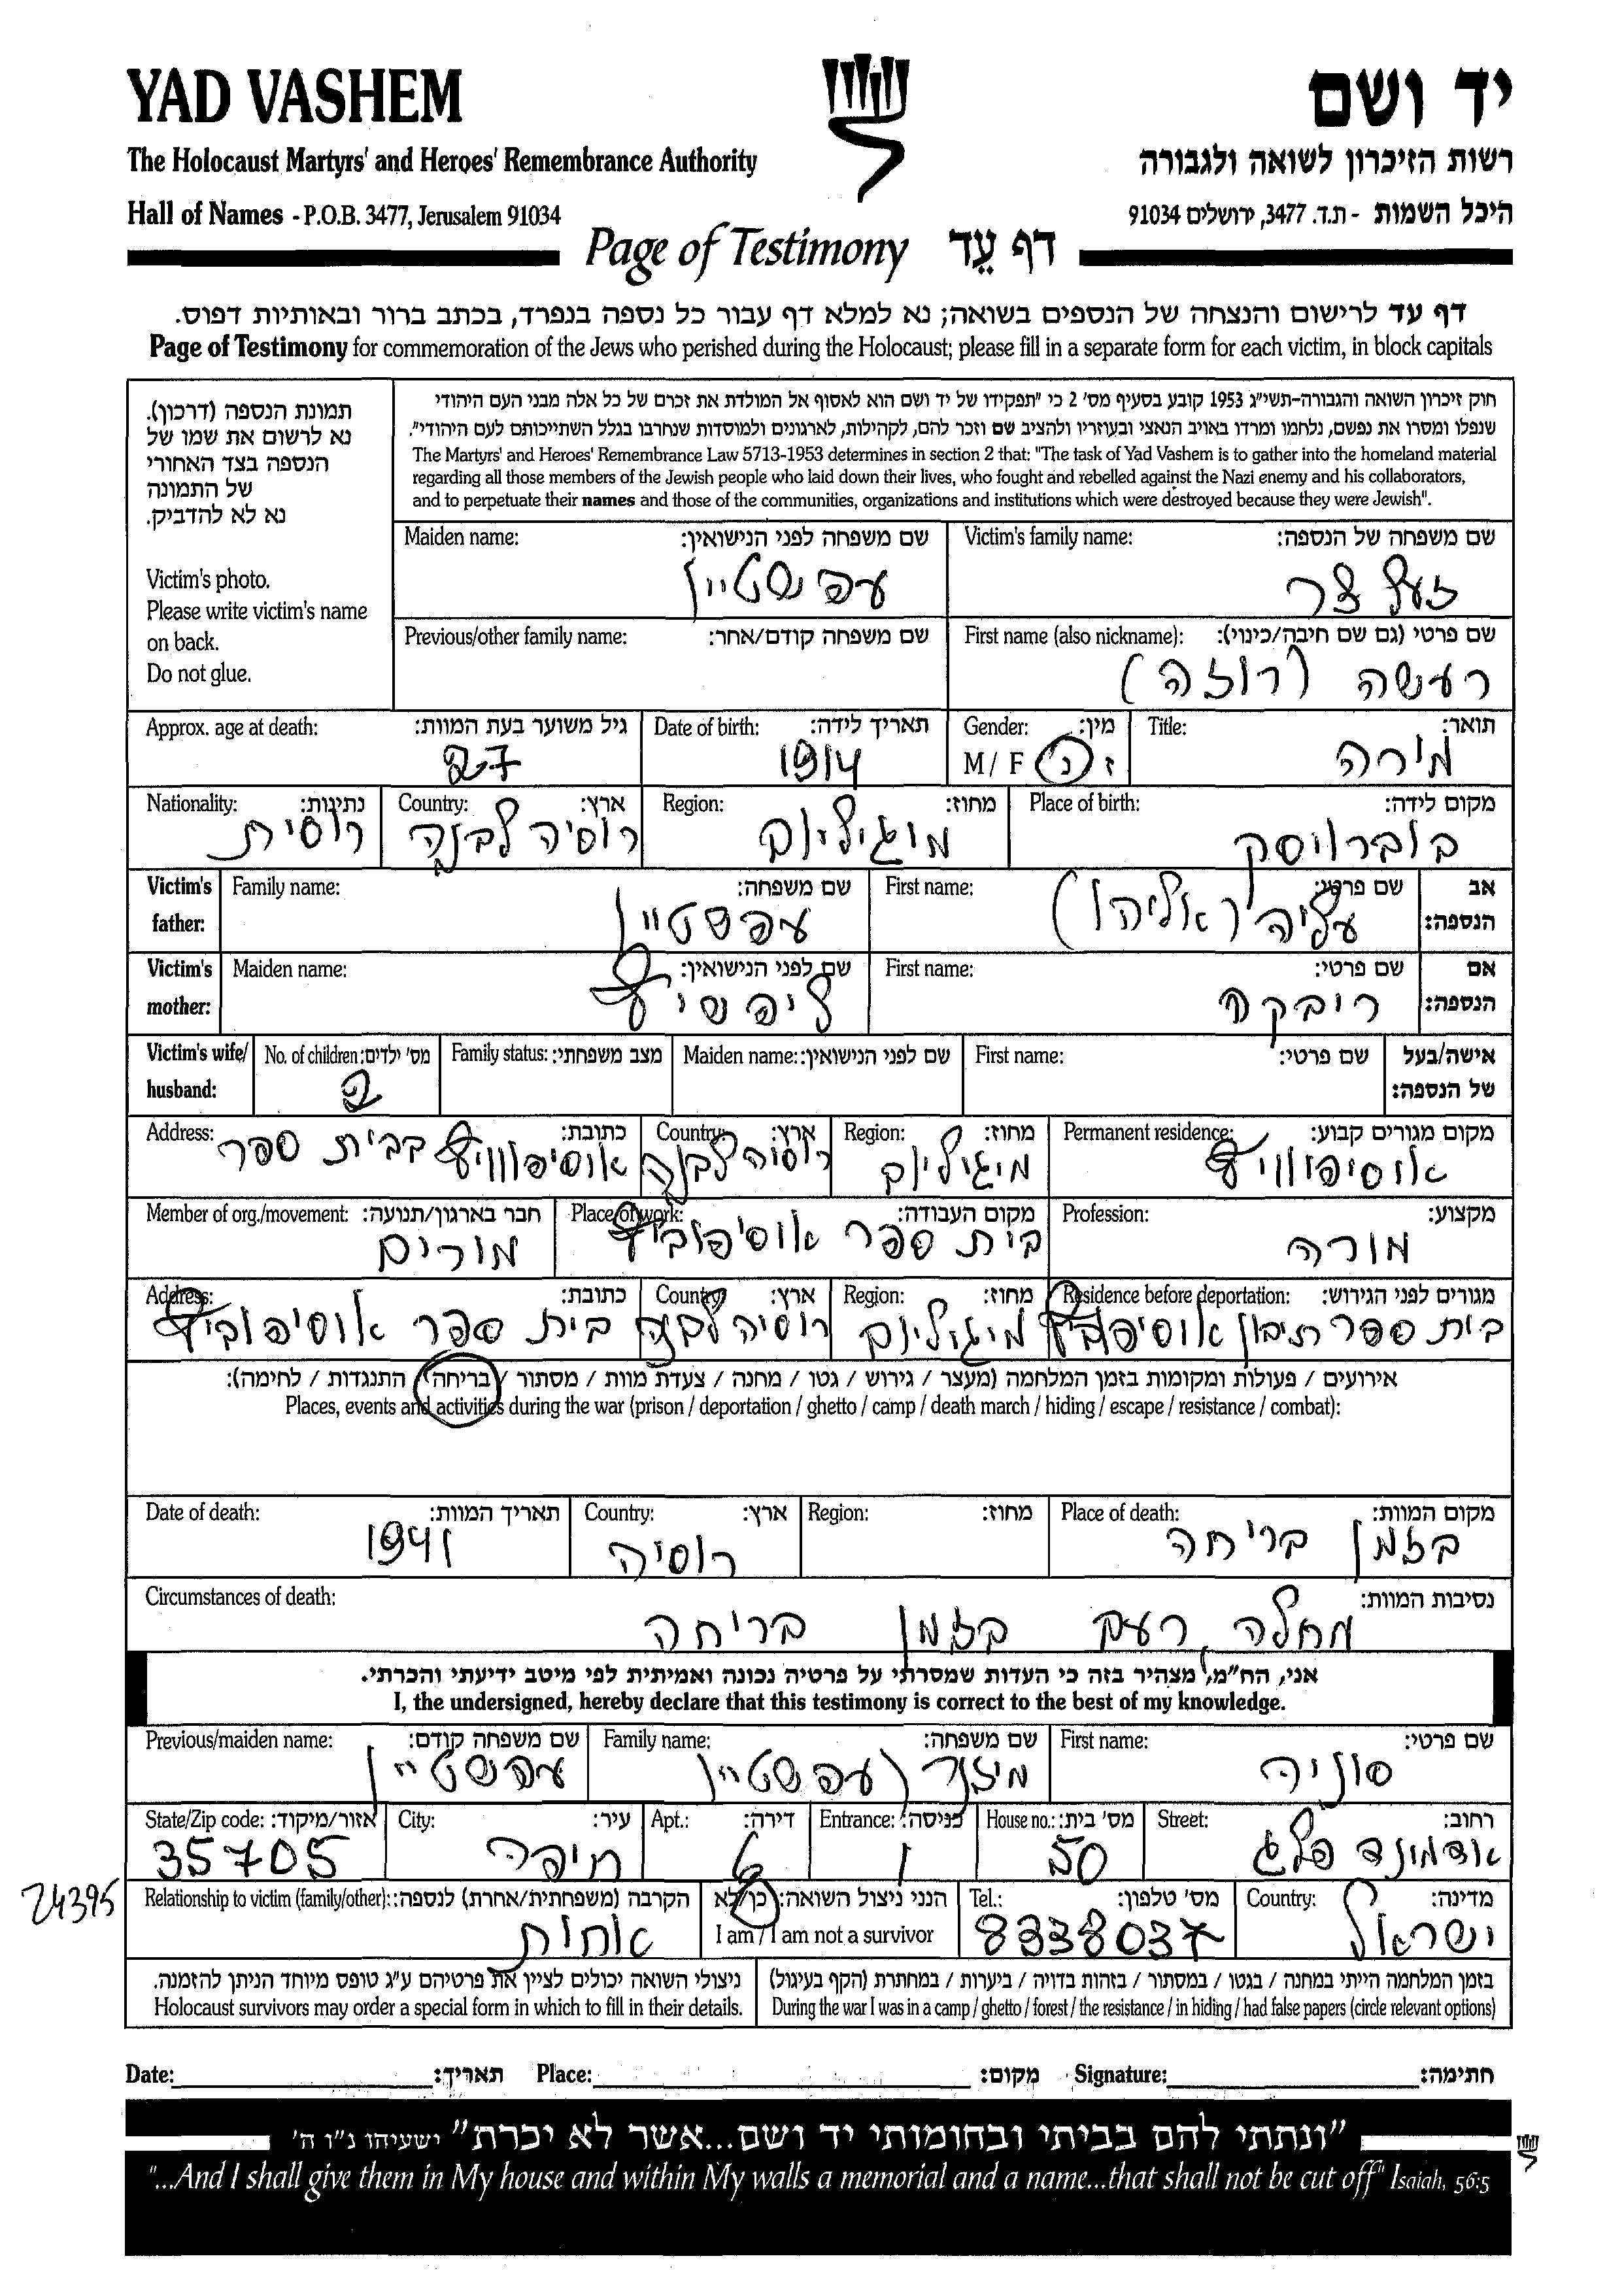 YAD VASHEM
יד ושם
The Holocaust Martyrs' and Heroes' Remembrance Authority
רשות הזיכרון לשואה ולגבורה
Hall of Names - P.O.B. 3477, Jerusalem 91034
היכל השמות - ת.ד. 3477, ירושלים 91034
Page of Testimony דף עֵד
דף עד לרישום והנצחה של הנספים בשואה; נא למלא דף עבור כל נספה בנפרד, בכתב ברור ובאותיות דפוס.
Page of Testimony for commemoration of the Jews who perished during the Holocaust; please fill in a separate form for each victim, in block capitals
תמונת הנספה (דרכון).
נא לרשום את שמו של
הנספה בצד האחורי
של התמונה
נא לא להדביק.
Victim's photo.
Please write victim's name
on back.
Do not glue.
חוק זיכרון השואה והגבורה-תשי"ג 1953 קובע בסעיף מס' 2 כי "תפקידו של יד ושם הוא לאסוף אל המולדת את זכרם של כל אלה מבני העם היהודי
שנפלו ומסרו את נפשם, נלחמו ומרדו באויב הנאצי ובעוזריו ולהציב שם וזכר להם, לקהילות, לארגונים ולמוסדות שנחרבו בגלל השתייכותם לעם היהודי".
The Martyrs' and Heroes' Remembrance Law 5713-1953 determines in section 2 that: "The task of Yad Vashem is to gather into the homeland material
regarding all those members of the Jewish people who laid down their lives, who fought and rebelled against the Nazi enemy and his collaborators,
and to perpetuate their names and those of the communities, organizations and institutions which were destroyed because they were Jewish".
Victim's family name: שם משפחה של הנספה:
זעלצר
Maiden name: שם משפחה לפני הנישואין:
עפשטיין
First name (also nickname): שם פרטי (גם שם חיבה/כינוי):
רעשה (רוזה)
Previous/other family name: שם משפחה קודם/אחר:
Title: תואר:
מירה
Gender: מין:
M / F ז נ
Date of birth: תאריך לידה:
1914
Approx. age at death: גיל משוער בעת המוות:
27
Place of birth: מקום לידה:
בוברויסק
Region: מחוז:
מוגיליוב
Country: ארץ:
רוסיה לבנה
Nationality: נתינות:
רוסית
Victim's father: אב הנספה:
First name: שם פרטי:
עליה (אליהו)
Family name: שם משפחה:
עפשטיין
Victim's mother: אם הנספה:
First name: שם פרטי:
ריבקה
Maiden name: שם לפני הנישואין:
ליפשיץ
Victim's wife/ husband: אישה/בעל של הנספה:
First name: שם פרטי:
Maiden name: שם לפני הנישואין:
Family status: מצב משפחתי:
No. of children: מס' ילדים:
2
Permanent residence: מקום מגורים קבוע:
אוסיפוויץ
Region: מחוז:
מיגיליוב
Country: ארץ:
רוסיה לבנה
Address: כתובת:
אוסיפווויץ בבית ספר
Profession: מקצוע:
מורה
Place of work: מקום העבודה:
בית ספר אוסיפוביץ
Member of org./movement: חבר בארגון/תנועה:
מורים
Residence before deportation: מגורים לפני הגירוש:
בית ספר תיכון אוסיפוביץ
Region: מחוז:
מיגיליוב
Country: ארץ:
רוסיה לבנה
Address: כתובת:
בית ספר אוסיפוביץ
אירועים / פעולות ומקומות בזמן המלחמה (מעצר / גירוש / גטו / מחנה / צעדת מוות / מסתור / בריחה / התנגדות / לחימה):
Places, events and activities during the war (prison / deportation / ghetto / camp / death march / hiding / escape / resistance / combat):
Place of death: מקום המוות:
בזמן בריחה
Region: מחוז:
Country: ארץ:
רוסיה
Date of death: תאריך המוות:
1941
Circumstances of death: נסיבות המוות:
מחלה, רעב בזמן בריחה
אני, הח"מ, מצהיר בזה כי העדות שמסרתי על פרטיה נכונה ואמיתית לפי מיטב ידיעתי והכרתי.
I, the undersigned, hereby declare that this testimony is correct to the best of my knowledge.
First name: שם פרטי:
סוניה
Family name: שם משפחה:
מיזנר (עפשטיין)
Previous/maiden name: שם משפחה קודם:
עפשטיין
Street: רחוב:
אדמונד פלג
House no.: מס' בית:
50
Entrance: כניסה:
1
Apt.: דירה:
6
City: עיר:
חיפה
State/Zip code: אזור/מיקוד:
35705
Country: מדינה:
ישראל
Tel.: מס' טלפון:
8338037
הנני ניצול השואה: כן/לא
I am / I am not a survivor
Relationship to victim (family/other): הקרבה (משפחתית/אחרת) לנספה:
אחות
24395
בזמן המלחמה הייתי במחנה / בגטו / במסתור / בזהות בדויה / ביערות / במחתרת (הקף בעיגול)
During the war I was in a camp / ghetto / forest / the resistance / in hiding / had false papers (circle relevant options)
ניצולי השואה יכולים לציין את פרטיהם ע"ג טופס מיוחד הניתן להזמנה.
Holocaust survivors may order a special form in which to fill in their details.
Date: תאריך: Place: מקום: Signature: חתימה:
"ונתתי להם בביתי ובחומותי יד ושם...אשר לא יכרת" ישעיהו נ"ו ה'
"...And I shall give them in My house and within My walls a memorial and a name...that shall not be cut off" Isaiah, 56:5